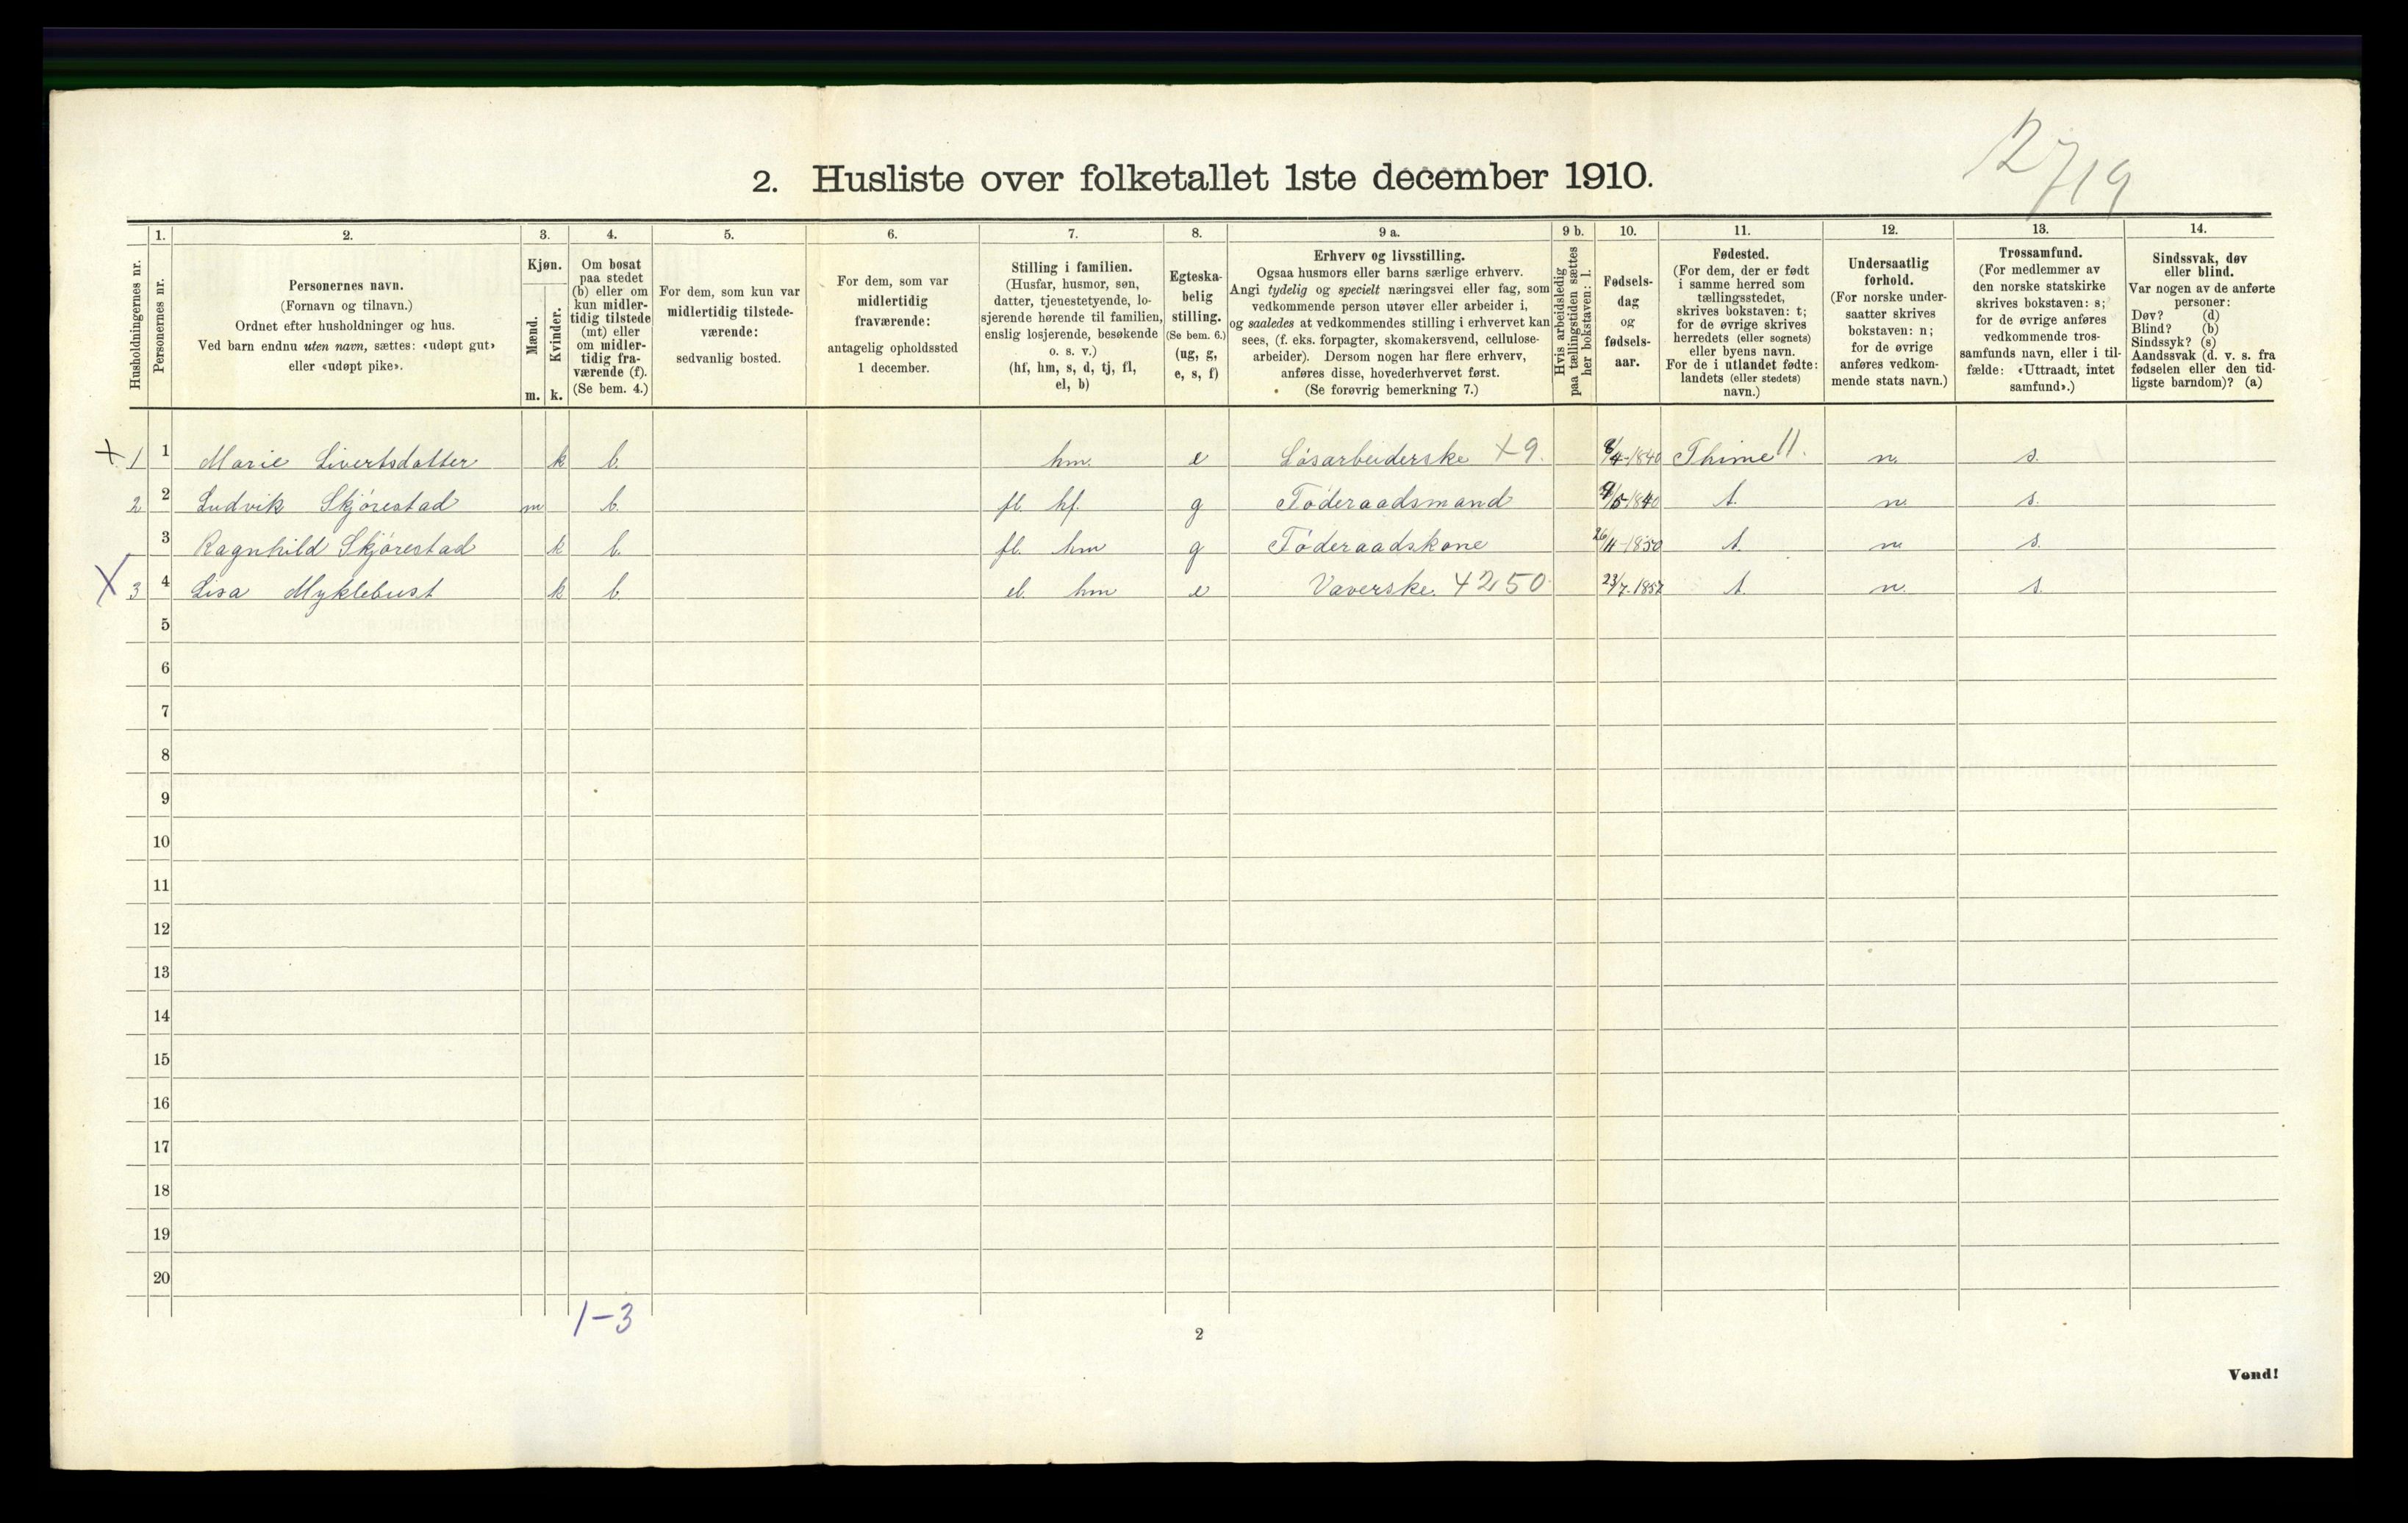 2719
2. Husliste over folketallet 1ste december 1910.
Husholdningernes nr.
1.
Personernes nr.
2.
Personernes navn.
(Fornavn og tilnavn.)
Ordnet efter husholdninger og hus.
Ved barn endnu uten navn, sættes: «udøpt gut»
eller «udøpt pike».
3.
Kjøn.
Mænd.
Kvinder.
m. k.
4.
Om bosat
paa stedet
(b) eller om
kun midler-
tidig tilstede
(mt) eller
om midler-
tidig fra-
værende (f).
(Se bem. 4.)
5.
For dem, som kun var
midlertidig tilstede-
værende:
sedvanlig bosted.
6.
For dem, som var
midlertidig
fraværende:
antagelig opholdssted
1 december.
7.
Stilling i familien.
(Husfar, husmor, søn,
datter, tjenestetyende, lo-
sjerende hørende til familien,
enslig losjerende, besøkende
o. s. v.)
(hf, hm, s, d, tj, fl,
el, b)
8.
Egteska-
belig
stilling.
(Se bem. 6.)
(ug, g,
e, s, f)
9 a.
Erhverv og livsstilling.
Ogsaa husmors eller barns særlige erhverv.
Angi tydelig og specielt næringsvei eller fag, som
vedkommende person utøver eller arbeider i,
og saaledes at vedkommendes stilling i erhvervet kan
sees, (f. eks. forpagter, skomakersvend, cellulose-
arbeider). Dersom nogen har flere erhverv,
anføres disse, hovederhvervet først.
(Se forøvrig bemerkning 7.)
9 b.
Hvis arbeidsledig
paa tællingstiden sættes
her bokstaven: l.
10.
Fødsels-
dag
og
fødsels-
aar.
11.
Fødested.
(For dem, der er født
i samme herred som
tællingsstedet,
skrives bokstaven: t;
for de øvrige skrives
herredets (eller sognets)
eller byens navn.
For de i utlandet fødte:
landets (eller stedets)
navn.)
12.
Undersaatlig
forhold.
(For norske under-
saatter skrives
bokstaven: n;
for de øvrige
anføres vedkom-
mende stats navn.)
13.
Trossamfund.
(For medlemmer av
den norske statskirke
skrives bokstaven: s;
for de øvrige anføres
vedkommende tros-
samfunds navn, eller i til-
fælde: «Uttraadt, intet
samfund».)
14.
Sindssvak, døv
eller blind.
Var nogen av de anførte
personer:
Døv? (d)
Blind? (b)
Sindssyk? (s)
Aandssvak (d. v. s. fra
fødselen eller den tid-
ligste barndom)? (a)
X 1 1 Marie Sivertsdatter k b. hm. e Løsarbeiderske X9. 8/4-1840 Thime 11. n. s.
2 2 Ludvik Skjørestad m b. fl. hf. g Føderaadsmand 9/5-1840 t. n. s.
3 Ragnhild Skjørestad k b. fl. hm g Føderaadskone 26/11-1850 t. n. s.
X 3 4 Lisa Myklebust k b. el. hm e Væverske. 4250 23/7-1857 t. n. s.
5
6
7
8
9
10
11
12
13
14
15
16
17
18
19
20
1-3
2
Vend!